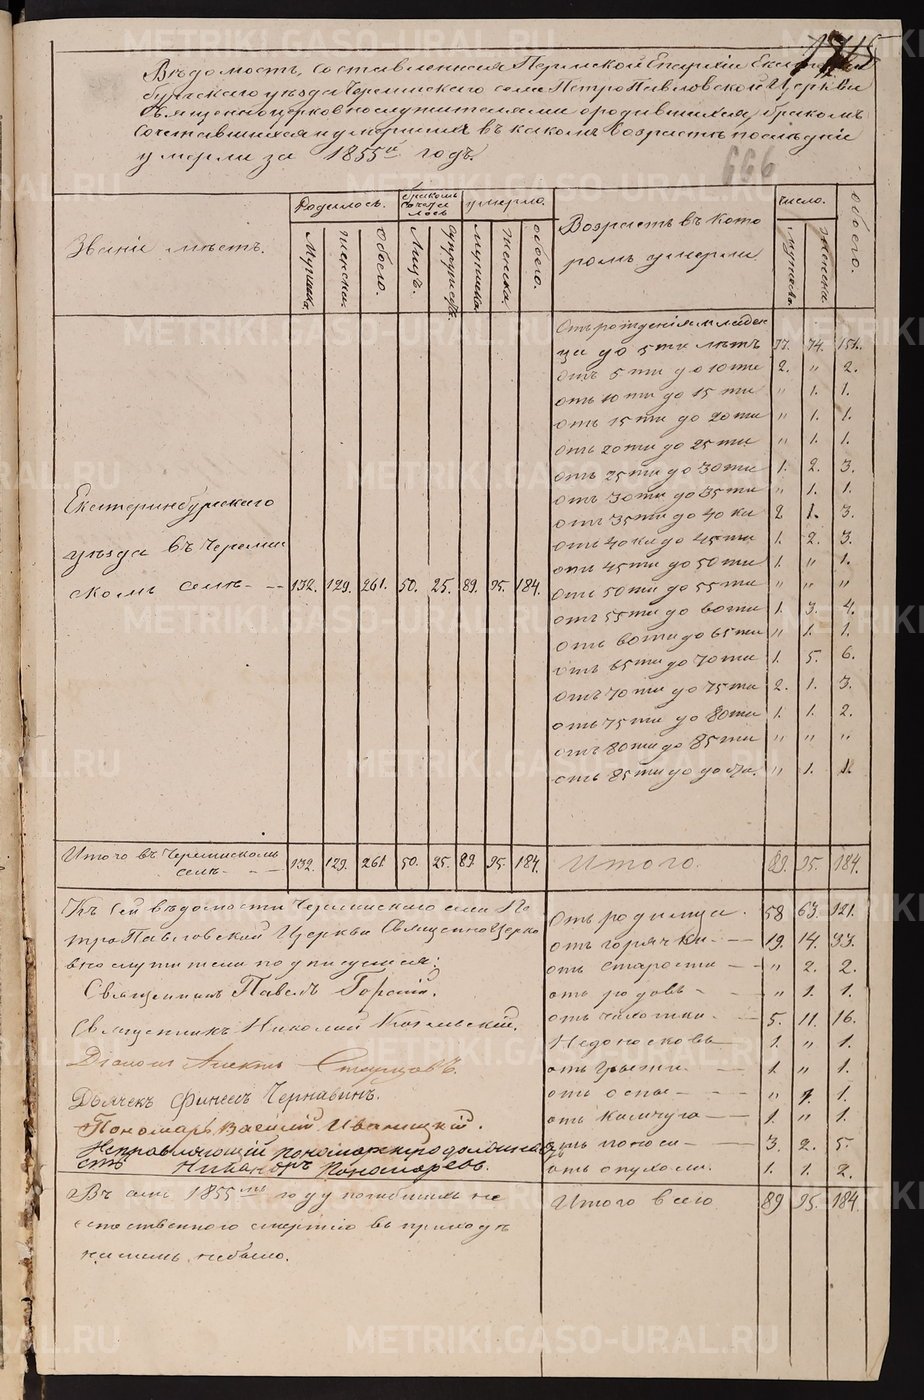 1715
Вѣдомость, составленная Пермской Епархіи Екатерин
бургскаго уѣзда Черемисскаго села ПетроПавловской Церкви
священноцерковнослужителями о родившихся, бракомъ
сочетавшихся и умершихъ въ какомъ возрастѣ послѣдніе
умерли за 1855й годъ.
666
Званіе мѣстъ.
Родилось.
бракомъ сочета лось
умерло.
Возрастъ въ кото
ромъ умерли
число.
обоего.
Мужска.
женска.
обоего.
Лицъ.
супружес.
мужска.
женска.
обоего.
мужска.
женска.
Отъ рожденія младен
ца до 5ти лѣтъ 77. 74. 151.
отъ 5ти до 10ти 2. " 2.
отъ 10ти до 15ти " 1. 1.
отъ 15ти до 20ти " 1. 1.
отъ 20ти до 25ти " 1. 1.
отъ 25ти до 30ти 1. 2. 3.
отъ 30ти до 35ти " 1. 1.
отъ 35ти до 40ка 2 1. 3.
отъ 40ка до 45ти 1. 2. 3.
отъ 45ти до 50ти 1. " 1.
отъ 50ти до 55ти " " "
отъ 55ти до 60ти 1. 3. 4.
отъ 60ти до 65ти " 1. 1.
отъ 65ти до 70ти 1. 5. 6.
отъ 70ти до 75ти 2. 1. 3.
отъ 75ти до 80ти 1. 1. 2.
отъ 80ти до 85ти " " "
отъ 85ти до " 1. 1.
Екатеринбургскаго
уѣзда въ Черемис
скомъ селѣ - - 132. 129. 261. 50. 25. 89. 95. 184.
Итого въ Черемисскомъ
селѣ - - 132. 129. 261. 50. 25. 89. 95. 184.
Итого. 89. 95. 184.
Къ сей вѣдомости Черемисскаго села Пе
троПавловской Церкви Священноцерко
внослужители подписуемся:
Священникъ Павелъ
Священникъ Николай
Діаконъ Старцовъ.
Дьячекъ Финеесъ Чернавинъ.
Пономарь Василій Иваницкій.
Исправляющій пономарскую должно
сть Никаноръ Пономаревъ.
отъ родимца. 58 63. 121.
отъ горячки - - 19. 14. 33.
отъ старости - - " 2. 2.
отъ родовъ - - " 1. 1.
отъ чахотки - - 5. 11. 16.
Недоносковъ - 1. " 1.
отъ грыжи - - 1. " 1.
отъ оспы - - " 1. 1.
отъ - - 1. " 1.
отъ поноса - - 3. 2. 5.
отъ опухоли. 1. 1. 2.
Итого всего 89 95. 184.
Въ семъ 1855мъ году погибшихъ не
естественною смертію въ приходѣ
нашемъ небыло.
METRIKI.GASO-URAL.RU